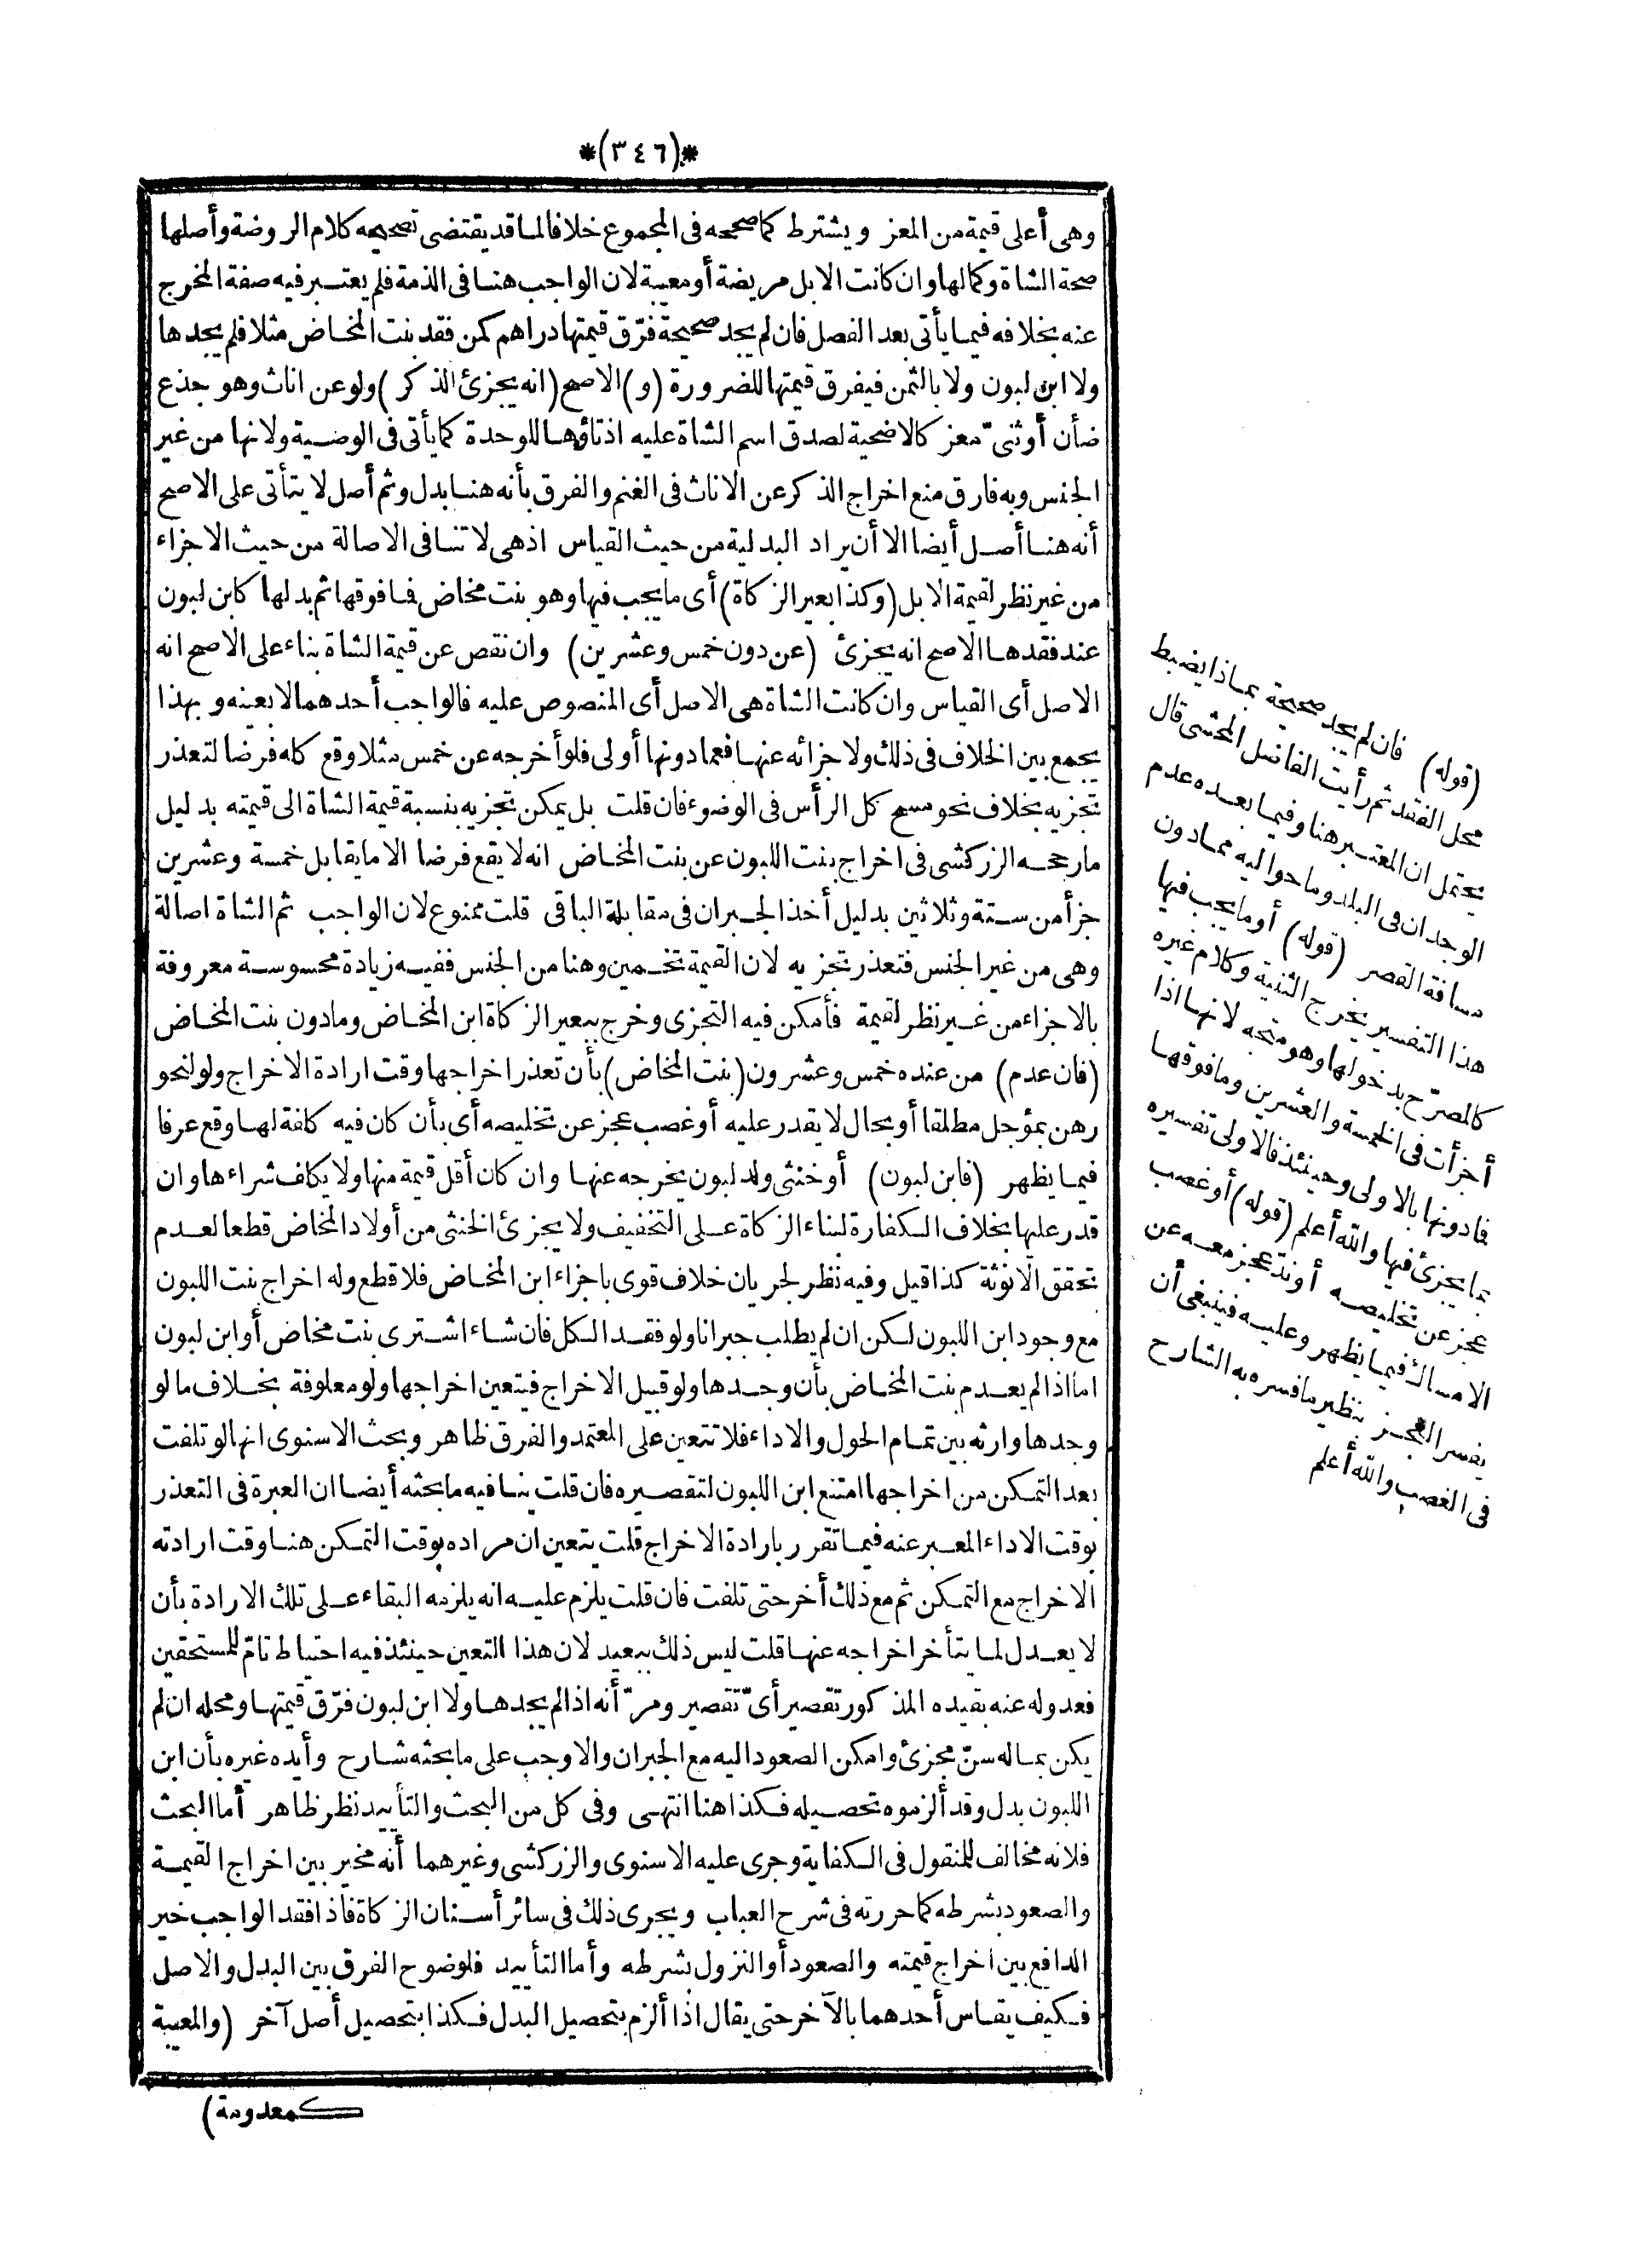 *(٣٤٦)*
وهى أعلى قيمة من المعز ويشترط كما صححه فى المجموع خلافا لما قد يقتضى تصحيحه كلام الروضة وأصلها
صحة الشاة وكمالها وان كانت الابل مريضة أو معيبة لان الواجب هنا فى الذمة فلم يعتبر فيه صفة المخرج
عنه بخلافه فيما يأتى بعد الفصل فان لم يجد صحيحة فرّق قيمتها دراهم كمن فقد بنت المخاض مثلا فلم يجدها
ولا ابن لبون ولا بالثمن فيفرق قيمتها للضرورة (و) الاصح (انه يجزئ الذكر) ولو عن اناث وهو جذع
ضأن أو ثنىّ معز كالاضحية لصدق اسم الشاة عليه اذ تاؤها للوحدة كما يأتى فى الوصية ولانها من غير
الجنس وبه فارق منع اخراج الذكر عن الاناث فى الغنم والفرق بأنه هنا بدل وثم أصل لا يتأتى على الاصح
أنه هنا أصل أيضا الا أن يراد البدلية من حيث القياس اذ هى لا تنافى الاصالة من حيث الاجزاء
من غير نظر لقيمة الابل (وكذا بعير الزكاة) أى ما يجب فيها وهو بنت مخاض فما فوقها ثم بدلها كابن لبون
عند فقدها الاصح انه يجزئ (عن دون خمس وعشرين) وان نقص عن قيمة الشاة بناء على الاصح انه
الاصل أى القياس وان كانت الشاة هى الاصل أى المنصوص عليه فالواجب أحدهما لا بعينه وبهذا
يجمع بين الخلاف فى ذلك ولاجزائه عنها فعما دونها أولى فلو أخرجه عن خمس مثلا وقع كله فرضا لتعذر
تجزيه بخلاف نحو مسح كل الرأس فى الوضوء فان قلت بل يمكن تجزيه بنسبة قيمة الشاة الى قيمته بدليل
ما رجحه الزركشى فى اخراج بنت اللبون عن بنت المخاض انه لا يقع فرضا الا ما يقابل خمسة وعشرين
جزأ من ستة وثلاثين بدليل أخذ الجبران فى مقابلة الباقى قلت ممنوع لان الواجب ثم الشاة اصالة
وهى من غير الجنس فتعذر تجزيه لان القيمة تخمين وهنا من الجنس ففيه زيادة محسوسة معروفة
بالاجزاء من غير نظر لقيمة فأمكن فيه التجزى وخرج ببعير الزكاة ابن المخاض وما دون بنت المخاض
(فان عدم) من عنده خمس وعشرون (بنت المخاض) بأن تعذر اخراجها وقت ارادة الاخراج ولو لنحو
رهن بمؤجل مطلقا أو بحال لا يقدر عليه أو غصب عجز عن تخليصه أى بأن كان فيه كلفة لها وقع عرفا
فيما يظهر (فابن لبون) أو خنثى ولد لبون يخرجه عنها وان كان أقل قيمة منها ولا يكلف شراءها وان
قدر عليها بخلاف الكفارة لبناء الزكاة على التخفيف ولا يجزئ الخنثى من أولاد المخاض قطعا لعدم
تحقق الانوثة كذا قيل وفيه نظر لجريان خلاف قوى باجزاء ابن المخاض فلا قطع وله اخراج بنت اللبون
مع وجود ابن اللبون لكن ان لم يطلب جبرانا ولو فقد الكل فان شاء اشترى بنت مخاض أو ابن لبون
اما اذا لم يعدم بنت المخاض بأن وجدها ولو قبيل الاخراج فيتعين اخراجها ولو معلوفة بخلاف ما لو
وجدها وارثه بين تمام الحول والاداء فلا تتعين على المعتمد والفرق ظاهر وبحث الاسنوى انها لو تلفت
بعد التمكن من اخراجها امتنع ابن اللبون لتقصيره فان قلت ينافيه ما بحثه أيضا ان العبرة فى التعذر
بوقت الاداء المعبر عنه فيما تقرر بارادة الاخراج قلت يتعين ان مراده بوقت التمكن هنا وقت ارادته
الاخراج مع التمكن ثم مع ذلك أخر حتى تلفت فان قلت يلزم عليه انه يلزمه البقاء على تلك الارادة بأن
لا يعدل لما يتأخر اخراجه عنها قلت ليس ذلك ببعيد لان هذا التعين حينئذ فيه احتياط تامّ للمستحقين
فعدوله عنه بقيده المذكور تقصير أىّ تقصير ومرّ أنه اذا لم يجدها ولا ابن لبون فرّق قيمتها ومحله ان لم
يكن بماله سنّ مجزئ وامكن الصعود اليه مع الجبران والاوجب على ما بحثه شارح وأيده غيره بأن ابن
اللبون بدل وقد ألزموه تحصيله فكذا هنا انتهى وفى كل من البحث والتأييد نظر ظاهر أما البحث
فلانه مخالف للمنقول فى الكفاية وجرى عليه الاسنوى والزركشى وغيرهما أنه مخير بين اخراج القيمة
والصعود بشرطه كما حررته فى شرح العباب ويجرى ذلك فى سائر أسنان الزكاة فاذا فقد الواجب خير
الدافع بين اخراج قيمته والصعود أو النزول بشرطه وأما التأييد فلوضوح الفرق بين البدل والاصل
فكيف يقاس أحدهما بالآخر حتى يقال اذا ألزم بتحصيل البدل فكذا بتحصيل أصل آخر (والمعيبة
كمعدومة)
(قوله) فان لم يجد صحيحة بماذا يضبط
محل الفقد ثم رأيت الفاضل المحشى قال
يحتمل ان المعتبر هنا وفيما بعده عدم
الوجدان فى البلد وما حواليه مما دون
مسافة القصر (قوله) أو ما يجب فيها
هذا التفسير يخرج الثنية وكلام غيره
كالمصرّح بدخولها وهو متجه لانها اذا
أجزأت فى الخمسة والعشرين وما فوقها
فما دونها بالاولى وحينئذ فالاولى تفسيره
بما يجزئ فيها والله أعلم (قوله) أو غصب
عجز عن تخليصه أو ند عجز معه عن
الامساك فيما يظهر وعليه فينبغى أن
يفسر العجز بنظير ما فسره به الشارح
فى الغصب والله أعلم